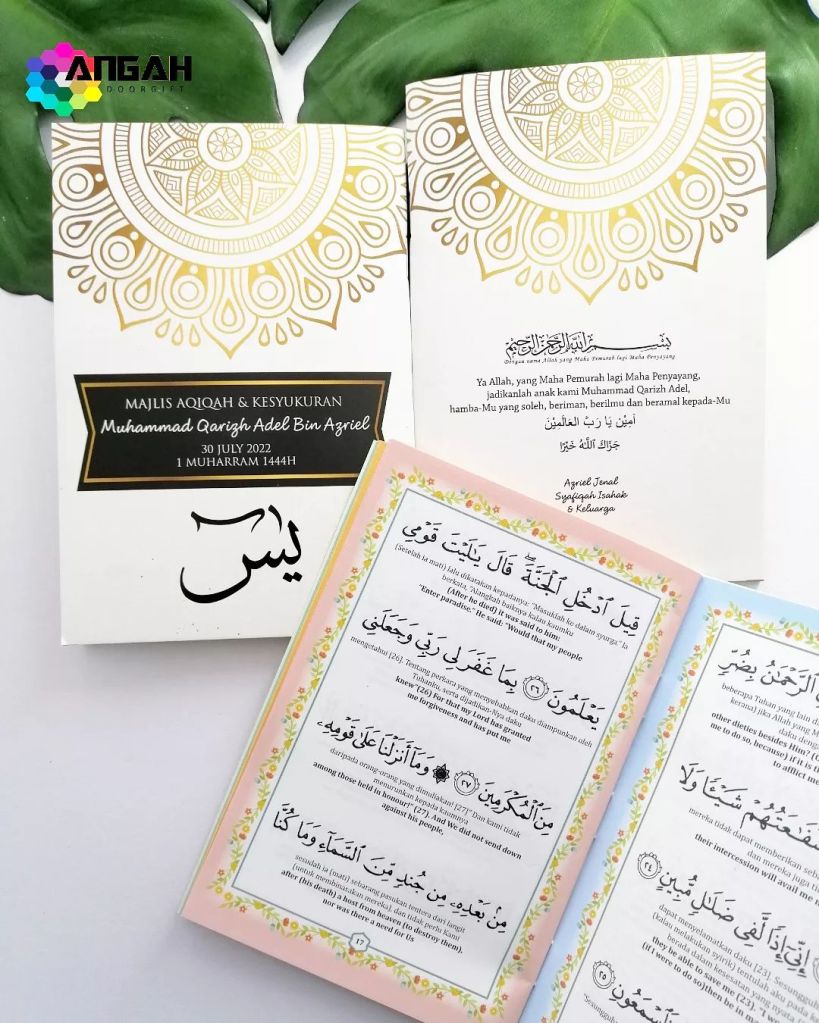 ANGAH
DOORGIFT
MAJLIS AQIQAH & KESYUKURAN
Muhammad Qarizh Adel Bin Azriel
30 JULY 2022
1 MUHARRAM 1444H
يس
بسم الله الرحمن الرحيم
Dengan nama Allah yang Maha Pemurah lagi Maha Penyayang
Ya Allah, yang Maha Pemurah lagi Maha Penyayang,
jadikanlah anak kami Muhammad Qarizh Adel,
hamba-Mu yang soleh, beriman, berilmu dan beramal kepada-Mu
اٰمِيْن يَا رَبَّ الْعَالَمِيْنَ
جَزَاكَ اللّٰهُ خَيْرًا
Azriel Jenal
Syafiqah Isahak
& Keluarga
قِيلَ ٱدْخُلِ ٱلْجَنَّةَ ۖ قَالَ يَٰلَيْتَ قَوْمِي
(Setelah ia mati) lalu dikatakan kepadanya: "Masuklah ke dalam syurga." Ia
berkata, "Alangkah baiknya kalau kaumku
(After he died) it was said to him:
"Enter paradise." He said: "Would that my people
يَعْلَمُونَ ٢٦ بِمَا غَفَرَ لِي رَبِّي وَجَعَلَنِي
mengetahui [26]. Tentang perkara yang menyebabkan daku diampunkan oleh
Tuhanku, serta dijadikan-Nya daku
knew"(26) For that my Lord has granted
me forgiveness and has put me
مِنَ ٱلْمُكْرَمِينَ ٢٧ وَمَآ أَنزَلْنَا عَلَىٰ قَوْمِهِۦ
daripada orang-orang yang dimuliakan! [27]" Dan kami tidak
menurunkan kepada kaumnya
among those held in honour!" (27). And We did not send down
against his people,
مِنۢ بَعْدِهِۦ مِن جُندٍ مِّنَ ٱلسَّمَآءِ وَمَا كُنَّا
sesudah ia (mati) sebarang pasukan tentera dari langit
(untuk membinasakan mereka), dan tidak perlu Kami
after (his death) a host from heaven (to destroy them),
nor was there a need for Us
17
ٱلرَّحْمَٰنُ بِضُرٍّ
beberapa Tuhan yang lain
kerana) jika Allah yang
daku dengan
other dieties besides Him?
me to do so, because) if it is
to afflict me
شَفَٰعَتُهُمْ شَيْـًٔا وَلَا
mereka tidak dapat memberikan
dan mereka juga
their intercession will avail me
٢٤ إِنِّىٓ إِذًا لَّفِى ضَلَٰلٍ مُّبِينٍ
dapat menyelamatkan daku [23]. Sesungguh
(kalau melakukan syirik) tentulah aku pada
berada dalam kesesatan yang nyata
they be able to save me (23). "I
(if I were to do so)then be in
٢٥ فَٱسْمَعُونِ
"Sesungguh